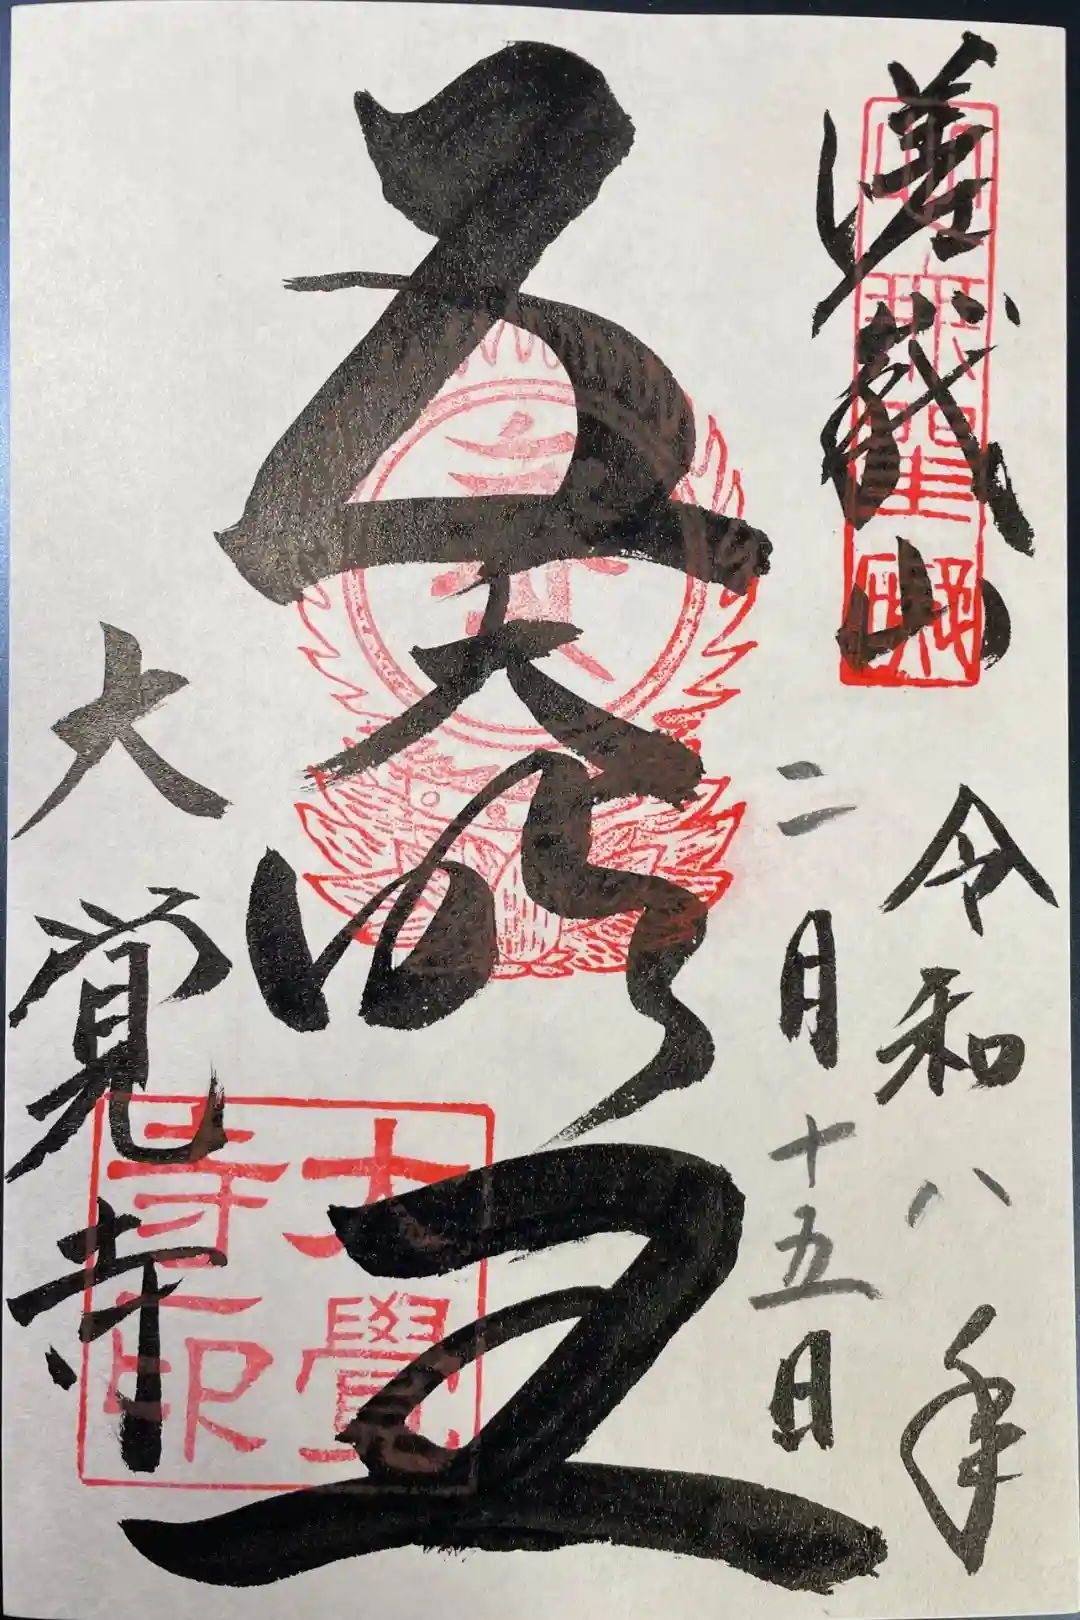 嵯峨山
令和八年
二月十五日
五大明王
大覚寺
大覺
寺印